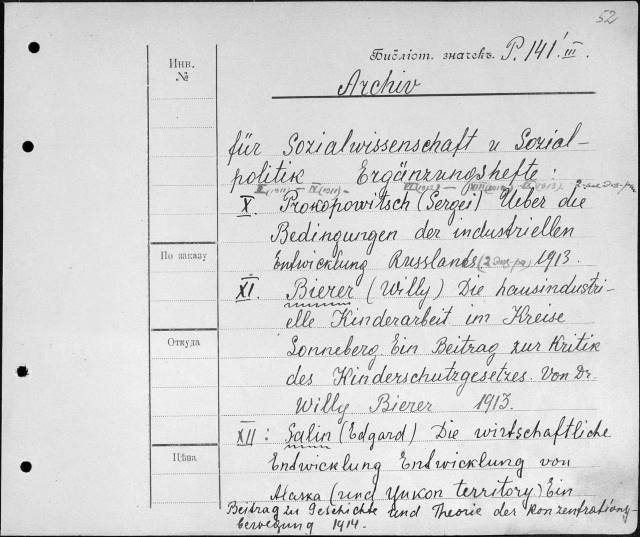 52
Инв.
№
Библіот. значекъ P. 141 III.
Archiv
für Sozialwissenschaft u Sozial-
politik Ergänzungshefte:
X. Prokopowitsch (Sergei) Ueber die
Bedingungen der industriellen
По заказу
Entwicklung Russlands (2 экз-ра) 1913.
XI. Bierer (Willy) Die hausindustri-
elle Kinderarbeit im Kreise
Откуда
Sonneberg. Ein Beitrag zur Kritik
des Kinderschutzgesetzes. Von Dr.
Willy Bierer 1913.
XII: Salin (Edgard) Die wirtschaftliche
Цѣна
Entwicklung Entwicklung von
Alaska (und Yukon territory) Ein
Beitrag zu Geschichte und Theorie der Konzentrations-
bewegung 1914.